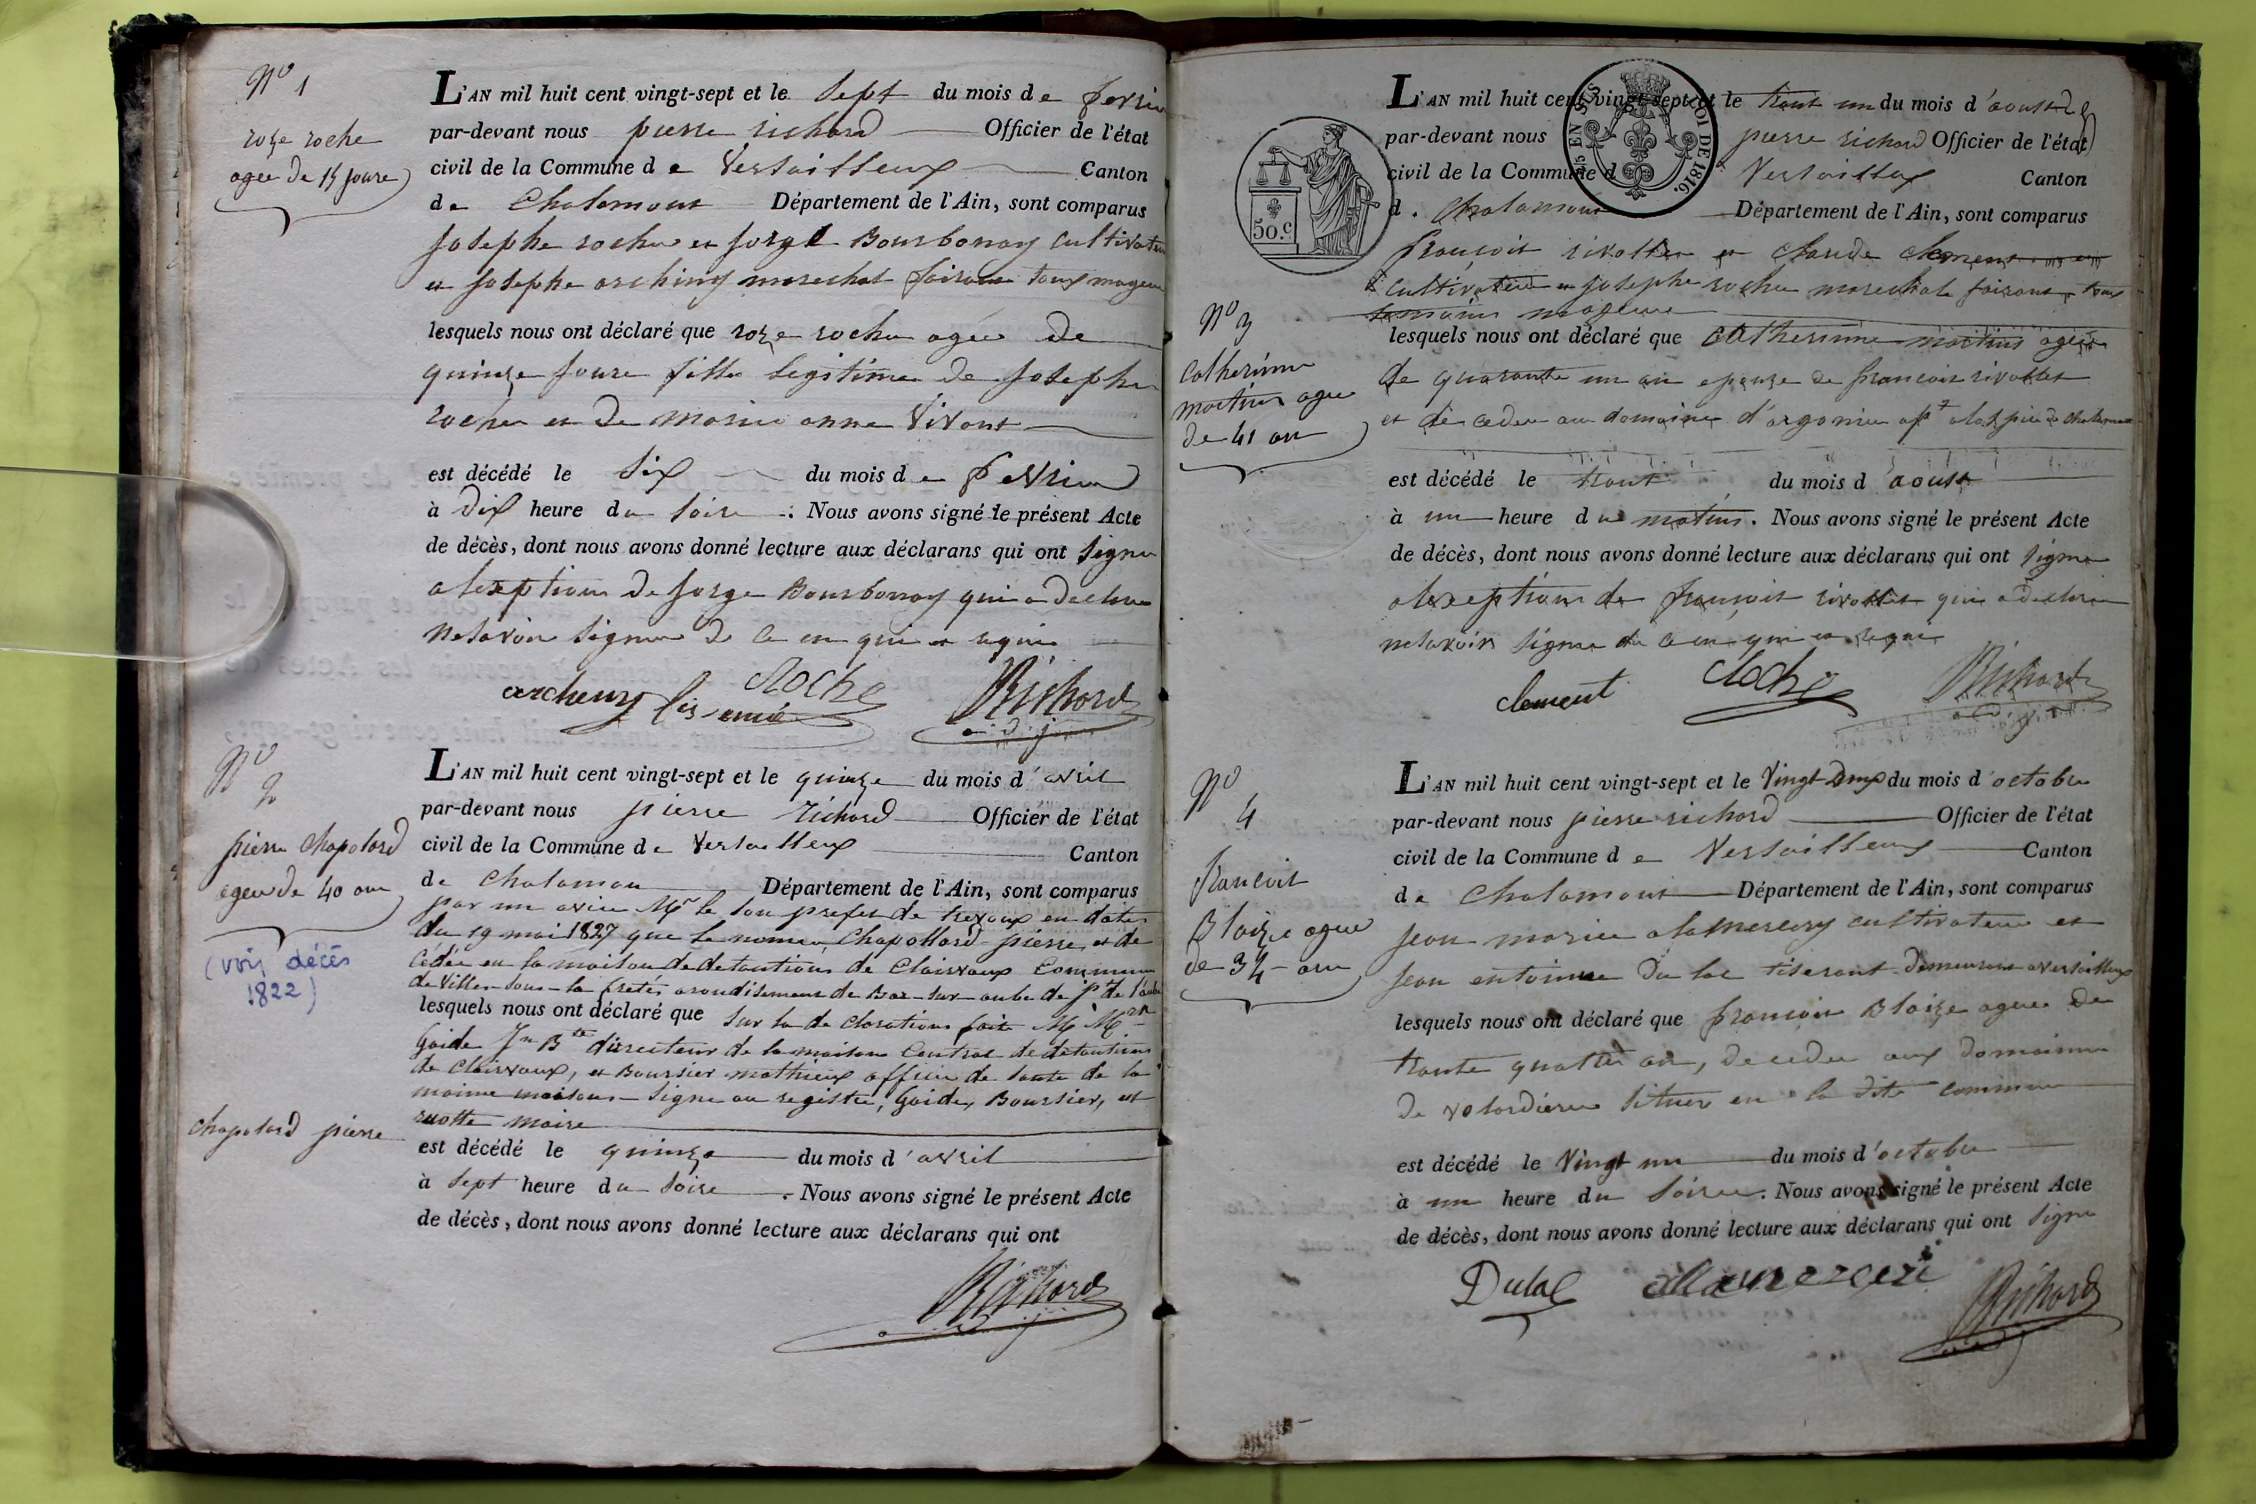 N° 1
roze roche
agee de 15 joure
L'AN mil huit cent vingt-sept et le sept du mois de fevrie
par-devant nous pierre richard Officier de l'état
civil de la Commune de Versailleux Canton
de Chalamont Département de l'Ain, sont comparus
Josephe rocher et jorge Bourbonay cultivateur
et josephe archiny marechal
lesquels nous ont déclaré que roze rocher agée de
quinze joure fille legitime de Josephe
rocher et de marie anne Vivant
est décédé le six du mois de fevrier
à dix heure du soire. Nous avons signé le présent Acte
de décès, dont nous avons donné lecture aux déclarans qui ont signer
alexeptions de jorge Bourbonay qui a declare
ne savoir signer de ce en qui et requi
archeny Roche
Richard
N° 2
pierre chapolard
agée de 40 an
(voir décès
1822)
chapolard pierre
L'AN mil huit cent vingt-sept et le quinze du mois d'avril
par-devant nous pierre richard Officier de l'état
civil de la Commune de Versailleux Canton
de chalamon Département de l'Ain, sont comparus
par un avis Mr le sou prefet de trevoux en date
du 19 mai 1827 que le nomer Chapollard pierre et de
cédée en la maison de detantions de Clairvaux Commune
de Ville-sous-la ferte arondisement de Bar-sur-aube de pt de l'aube
lesquels nous ont déclaré que sur la declarations faite
Gaide Jn Bte directeur de la maison Central de detantions
de Clairvaux, et Boursier mathieux officier de sante de la
maime maisons signe au registre, Gaide, Boursier, et
ruotte maire
est décédé le quinze du mois d'avril
à sept heure du soire. Nous avons signé le présent Acte
de décès, dont nous avons donné lecture aux déclarans qui ont
Richard
EN SUS ROI DE 1816.
50.c
N° 3
Catherinne
martins agee
de 41 an
L'AN mil huit cent vingt-sept et le trant un du mois d'aoust
par-devant nous pierre richard Officier de l'état
civil de la Commune d Versailleux Canton
d. chalamont Département de l'Ain, sont comparus
françoit rivollet et claude clement
cultivateur et josephe rocher marechal
temoins mageure
lesquels nous ont déclaré que catherinne martins agée
de quarante un an epouze de françois rivollet
et de ceder au domaine d'argonier
est décédé le trant du mois d'aoust
à un heure du matins. Nous avons signé le présent Acte
de décès, dont nous avons donné lecture aux déclarans qui ont signe
alexeptions de françoit rivollet qui a declare
ne savoir signer de ce en qui et requi
clement Roche Richard
N° 4
francoit
Blaize agee
de 34 an
L'AN mil huit cent vingt-sept et le Vingt deux du mois d'octobre
par-devant nous pierre richard Officier de l'état
civil de la Commune de Versailleux Canton
de Chalamont Département de l'Ain, sont comparus
jean marie alamercery cultivateur et
jean antoinne du lac tiserant demeurant a versailleux
lesquels nous ont déclaré que françois Blaize agee de
trante quatre an, deceder aux domainne
de volardiere situer en la dite commune
est décédé le Vingt un du mois d'octobre
à un heure du soire. Nous avons signé le présent Acte
de décès, dont nous avons donné lecture aux déclarans qui ont signe
Dulac alamerceri Richard